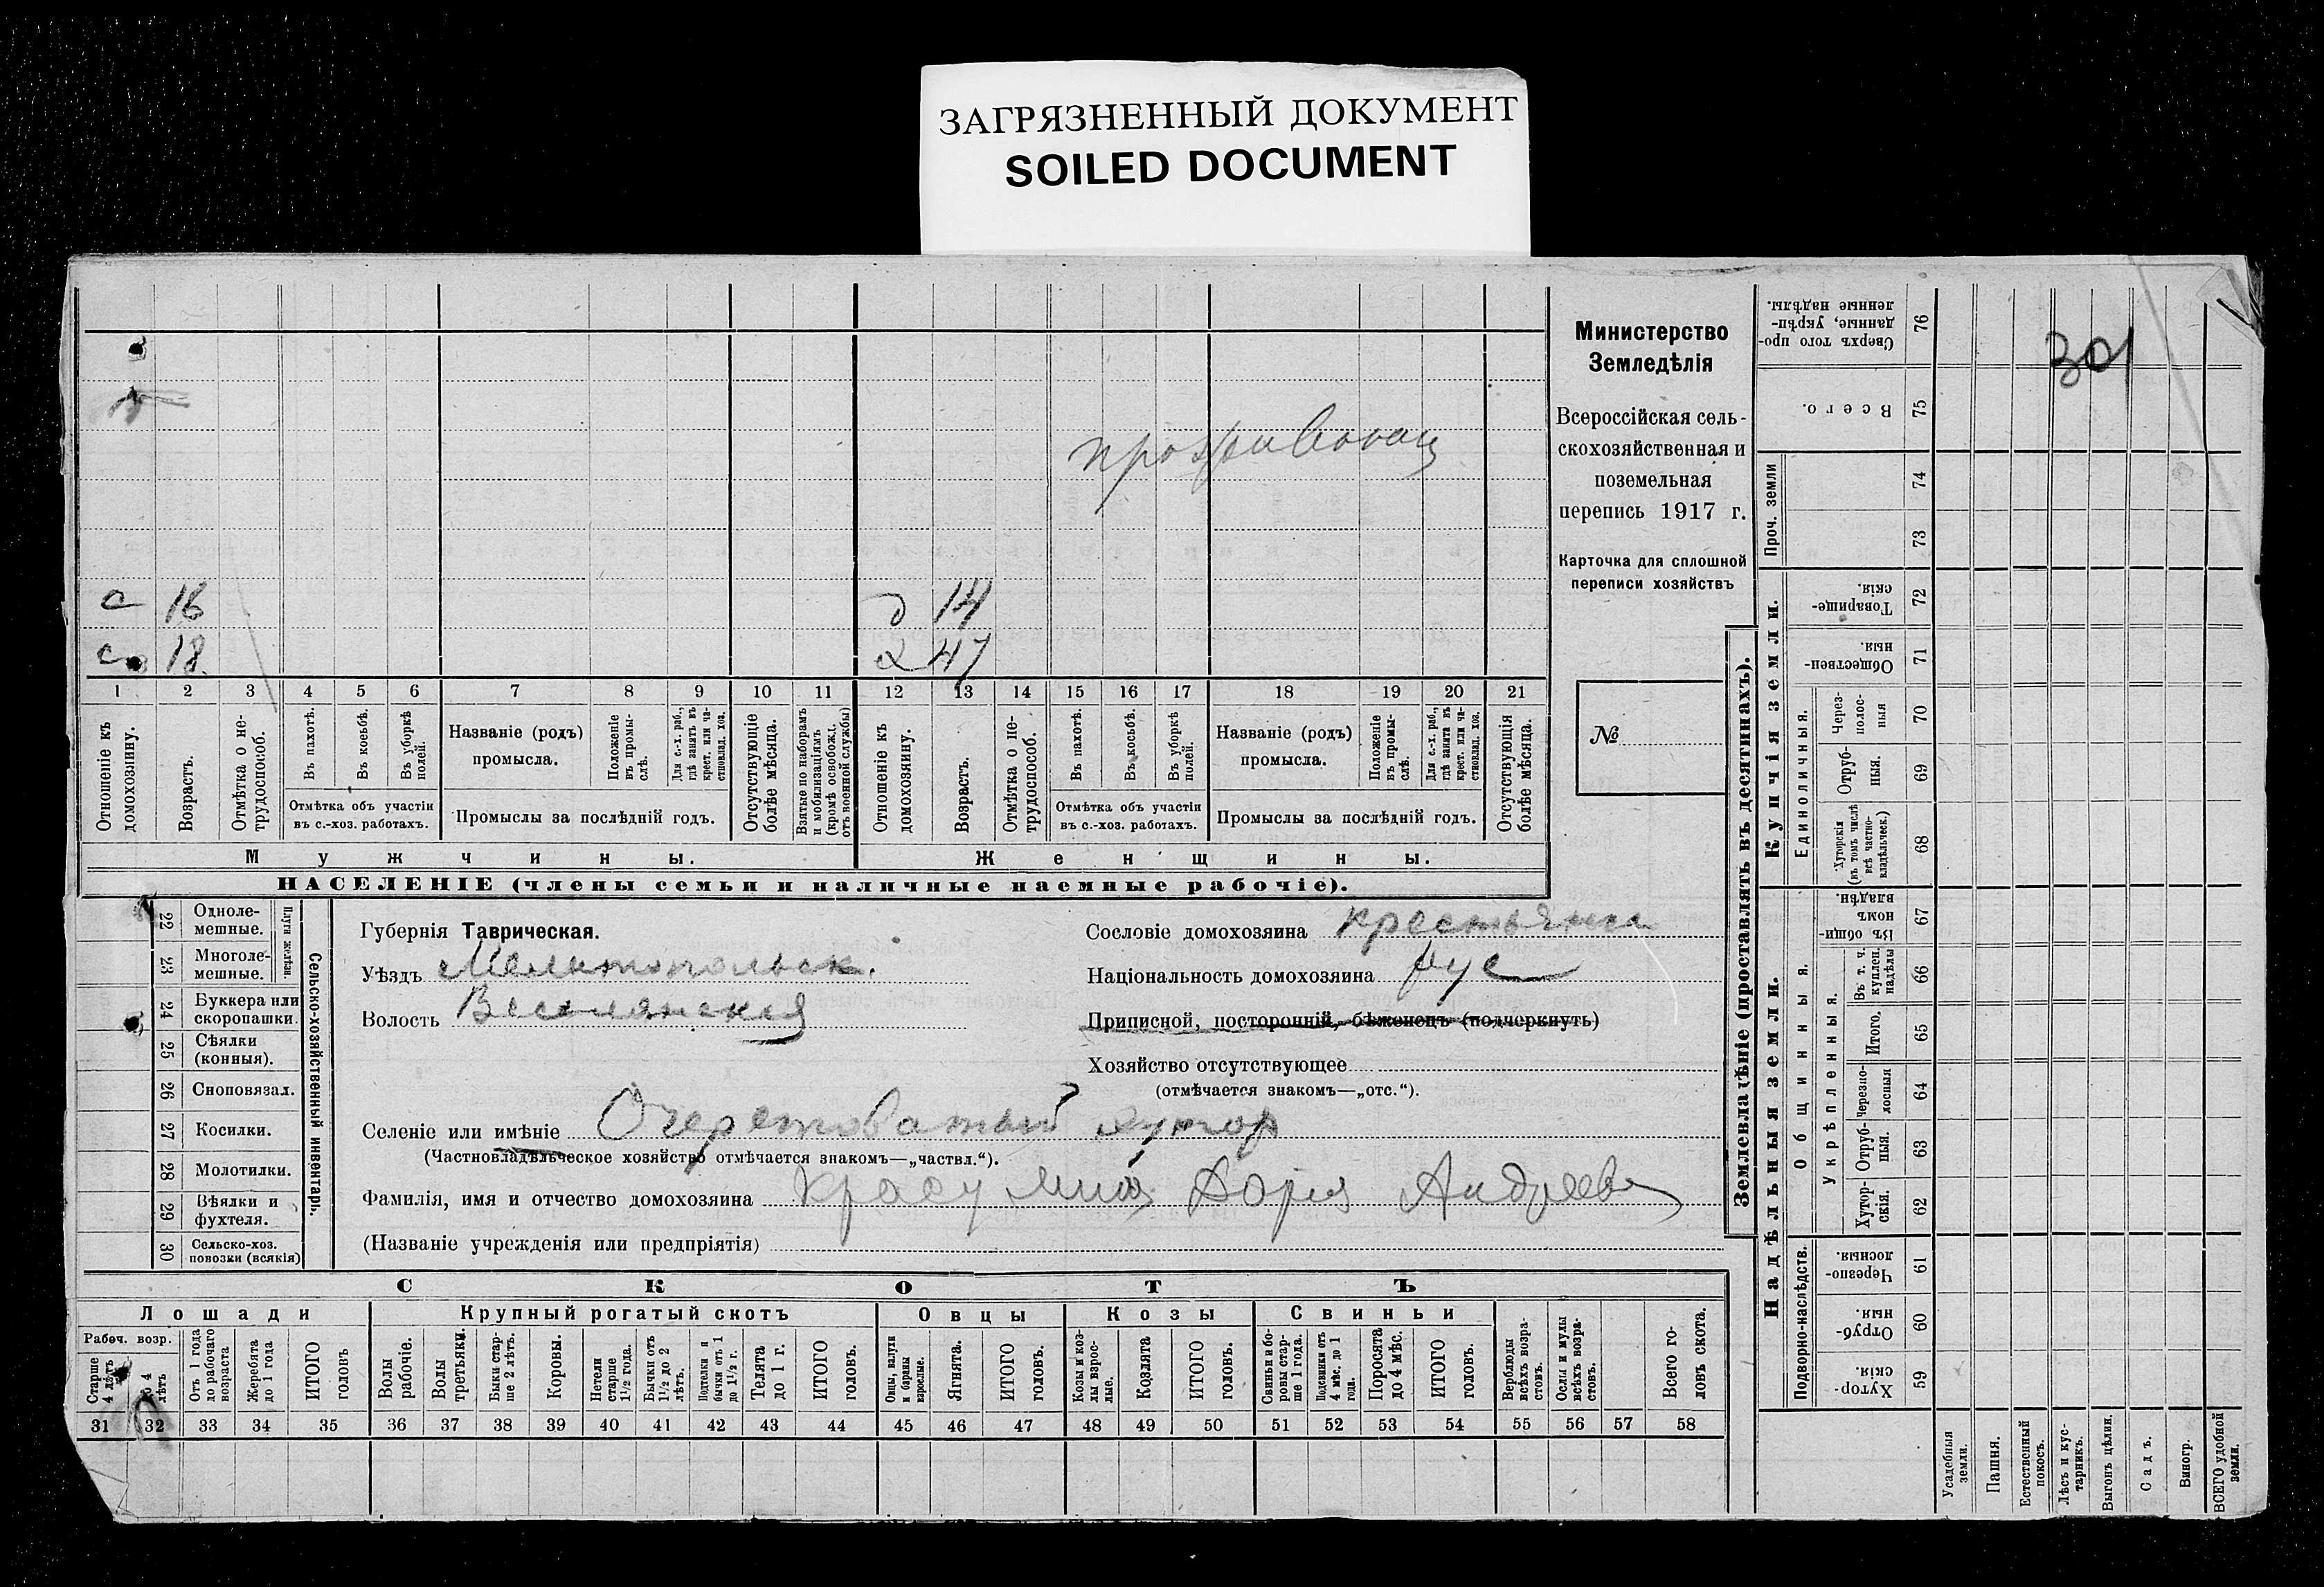 ЗАГРЯЗНЕННЫЙ ДОКУМЕНТ
SOILED DOCUMENT
301
с 16
с 18
д 14
47
1 2 3 4 5 6 7 8 9 10 11 12 13 14 15 16 17 18 19 20 21
Отношеніе къ домохозяину.
Возрастъ.
Отмѣтка о не-
трудоспособ.
Въ пахотѣ.
Въ косьбѣ.
Въ уборкѣ
полей.
Отмѣтка объ участіи
въ с.-хоз. работахъ.
Названіе (родъ)
промысла.
Положеніе
въ промы-
слѣ.
Для с.-х. раб.,
гдѣ занятъ въ
крест. или ча-
стновлад. хоз.
Промыслы за послѣдній годъ.
Отсутствующіе
болѣе мѣсяца.
Взятые по наборамъ
и мобилизаціямъ
(кромѣ освобожд.
отъ военной службы)
Отношеніе къ
домохозяину.
Возрастъ.
Отмѣтка о не-
трудоспособ.
Въ пахотѣ.
Въ косьбѣ.
Въ уборкѣ
полей.
Отмѣтка объ участіи
въ с.-хоз. работахъ.
Названіе (родъ)
промысла.
Положеніе
въ промы-
слѣ.
Для с.-х. раб.,
гдѣ занята въ
крест. или ча-
стновлад. хоз.
Промыслы за послѣдній годъ.
Отсутствующія
болѣе мѣсяца.
Мужчины.
Женщины.
НАСЕЛЕНІЕ (члены семьи и наличные наемные рабочіе).
Министерство
Земледѣлія
Всероссійская сель-
скохозяйственная и
поземельная
перепись 1917 г.
Карточка для сплошной
переписи хозяйствъ
№
22 Одноле-
мешные.
23 Многоле-
мешные.
Плуги желѣзн.
24 Буккера или
скоропашки.
25 Сѣялки
(конныя).
26 Сноповязал.
27 Косилки.
28 Молотилки.
29 Вѣялки и
фухтеля.
30 Сельско-хоз.
повозки (всякія)
Сельско-хозяйственный инвентарь.
Губернія Таврическая.
Уѣздъ Мелитопольск.
Волость Веселянская
Сословіе домохозяина крестьянка
Національность домохозяина рус
Приписной, посторонній, бѣженецъ (подчеркнуть)
Хозяйство отсутствующее
(отмѣчается знакомъ—„отс.“).
Селеніе или имѣніе Очеретоватый хутор
(Частновладѣльческое хозяйство отмѣчается знакомъ—„частвл.“).
Фамилія, имя и отчество домохозяина Дарья Андреев
(Названіе учрежденія или предпріятія)
СКОТЪ
Лошади
Крупный рогатый скотъ
Овцы
Козы
Свиньи
Рабоч. возр.
Старше
4 лѣтъ
4
лѣтъ
Отъ 1 года
до рабочаго
возраста
Жеребята
до 1 года
ИТОГО
головъ
Волы
рабочіе.
Волы
третьяки.
Быки стар-
ше 2 лѣтъ.
Коровы.
Нетели
старше
1½ года.
Бычки отъ
1½ до 2
лѣтъ.
Подтелки и
бычки отъ 1
до 1½ г.
Телята
до 1 г.
ИТОГО
головъ.
Овцы, валухи
и бараны
взрослые.
Ягнята.
ИТОГО
головъ.
Козы и коз-
лы взрос-
лые.
Козлята
ИТОГО
головъ.
Свиньи и бо-
ровы стар-
ше 1 года.
Подсвинки отъ
4 мѣс. до 1
года.
Поросята
до 4 мѣс.
ИТОГО
головъ.
Верблюды
всѣхъ возра-
стовъ.
Ослы и мулы
всѣхъ возра-
стовъ.
Всего го-
ловъ скота.
31 32 33 34 35 36 37 38 39 40 41 42 43 44 45 46 47 48 49 50 51 52 53 54 55 56 57 58
Землевладѣніе (проставлять въ десятинахъ).
Сверхъ того про-
данные, укрѣп-
ленные надѣлы.
76
Всего.
75
Проч. земли
74
73
Купчія земли.
Товарище-
скія.
72
Обществен-
ныя.
71
Единоличныя.
Через-
полос-
ныя
70
Отруб-
ныя.
69
Хуторскія
(въ томъ числѣ
всѣ частно-
владѣльческ.)
68
Надѣльныя земли.
Общинныя.
Въ общи-
номъ
владѣн.
67
Укрѣпленныя.
Въ т. ч.
куплен.
надѣлы
66
Итого.
65
Черезпо-
лосныя
64
Отруб-
ныя.
63
Хутор-
скія.
62
Подворно-наслѣдств.
Черезпо-
лосныя.
61
Отруб-
ныя.
60
Хутор-
скія.
59
Усадебныя
земли.
Пашня.
Естественный
покосъ.
Лѣсъ и кус-
тарникъ.
Выгонъ цѣлин.
Садъ.
Виногр.
ВСЕГО удобной
земли.